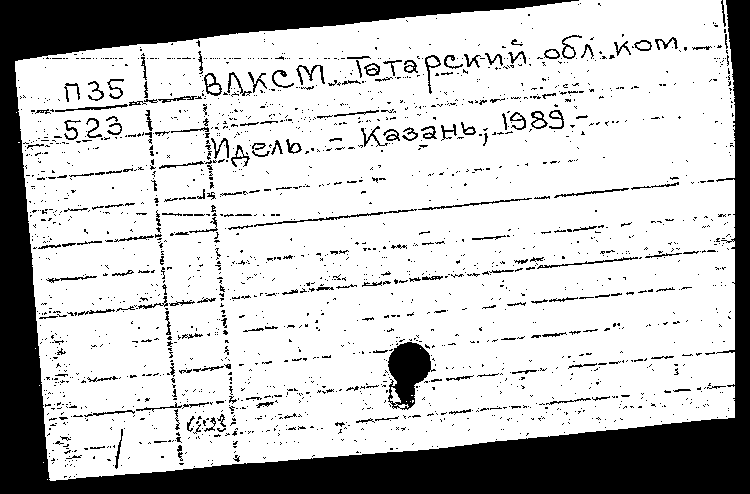 П35
ВЛКСМ. Татарский обл. ком.
523
Идель. – Казань, 1989.–